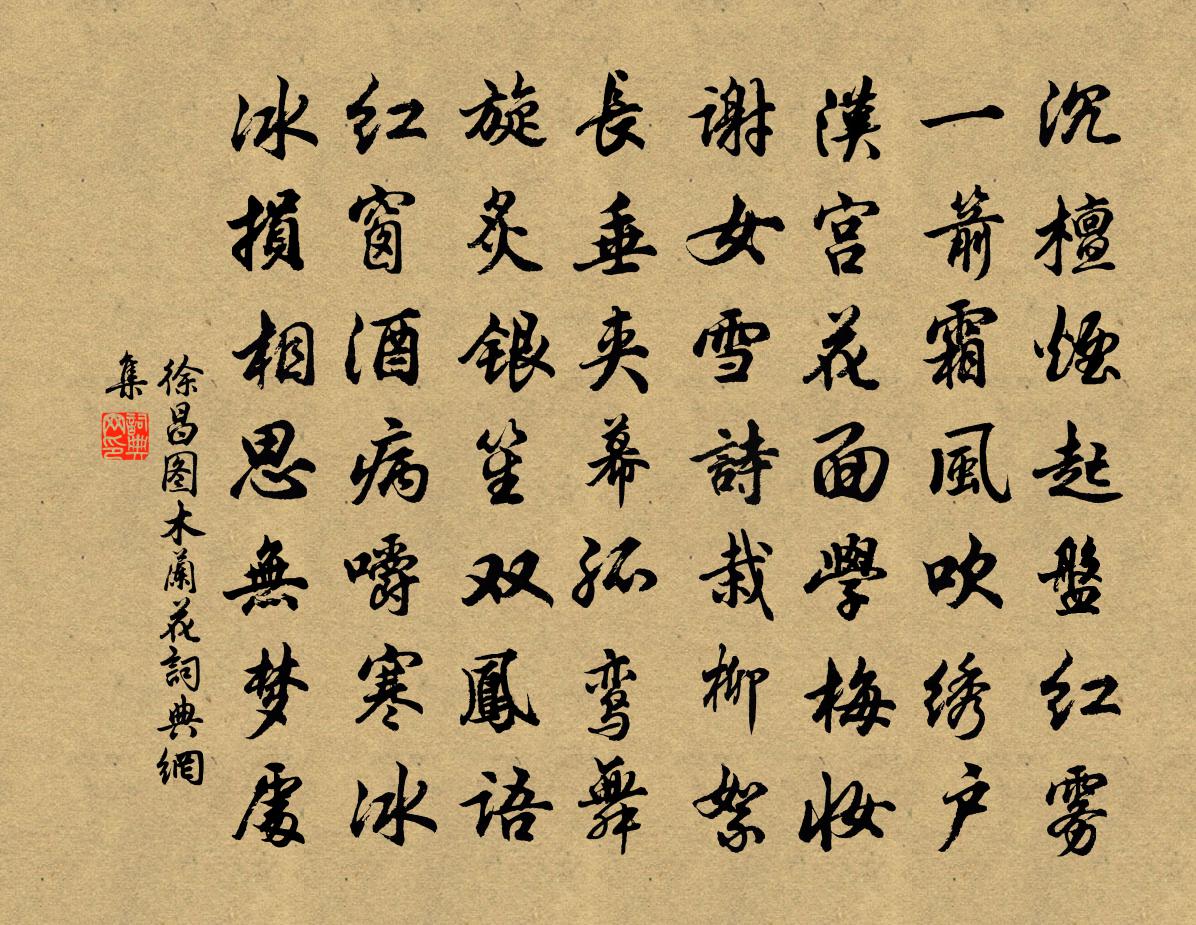 沉檀煙起盤红雾
一箭霜風吹绣户
漢宫花面學梅妆
謝女雪詩栽柳絮
長垂夹幕孤鸾舞
旋炙銀笙双鳳語
红窗酒病嚼寒冰
冰損相思無梦處
徐昌图木蘭花詞典網
集
詞典
网印